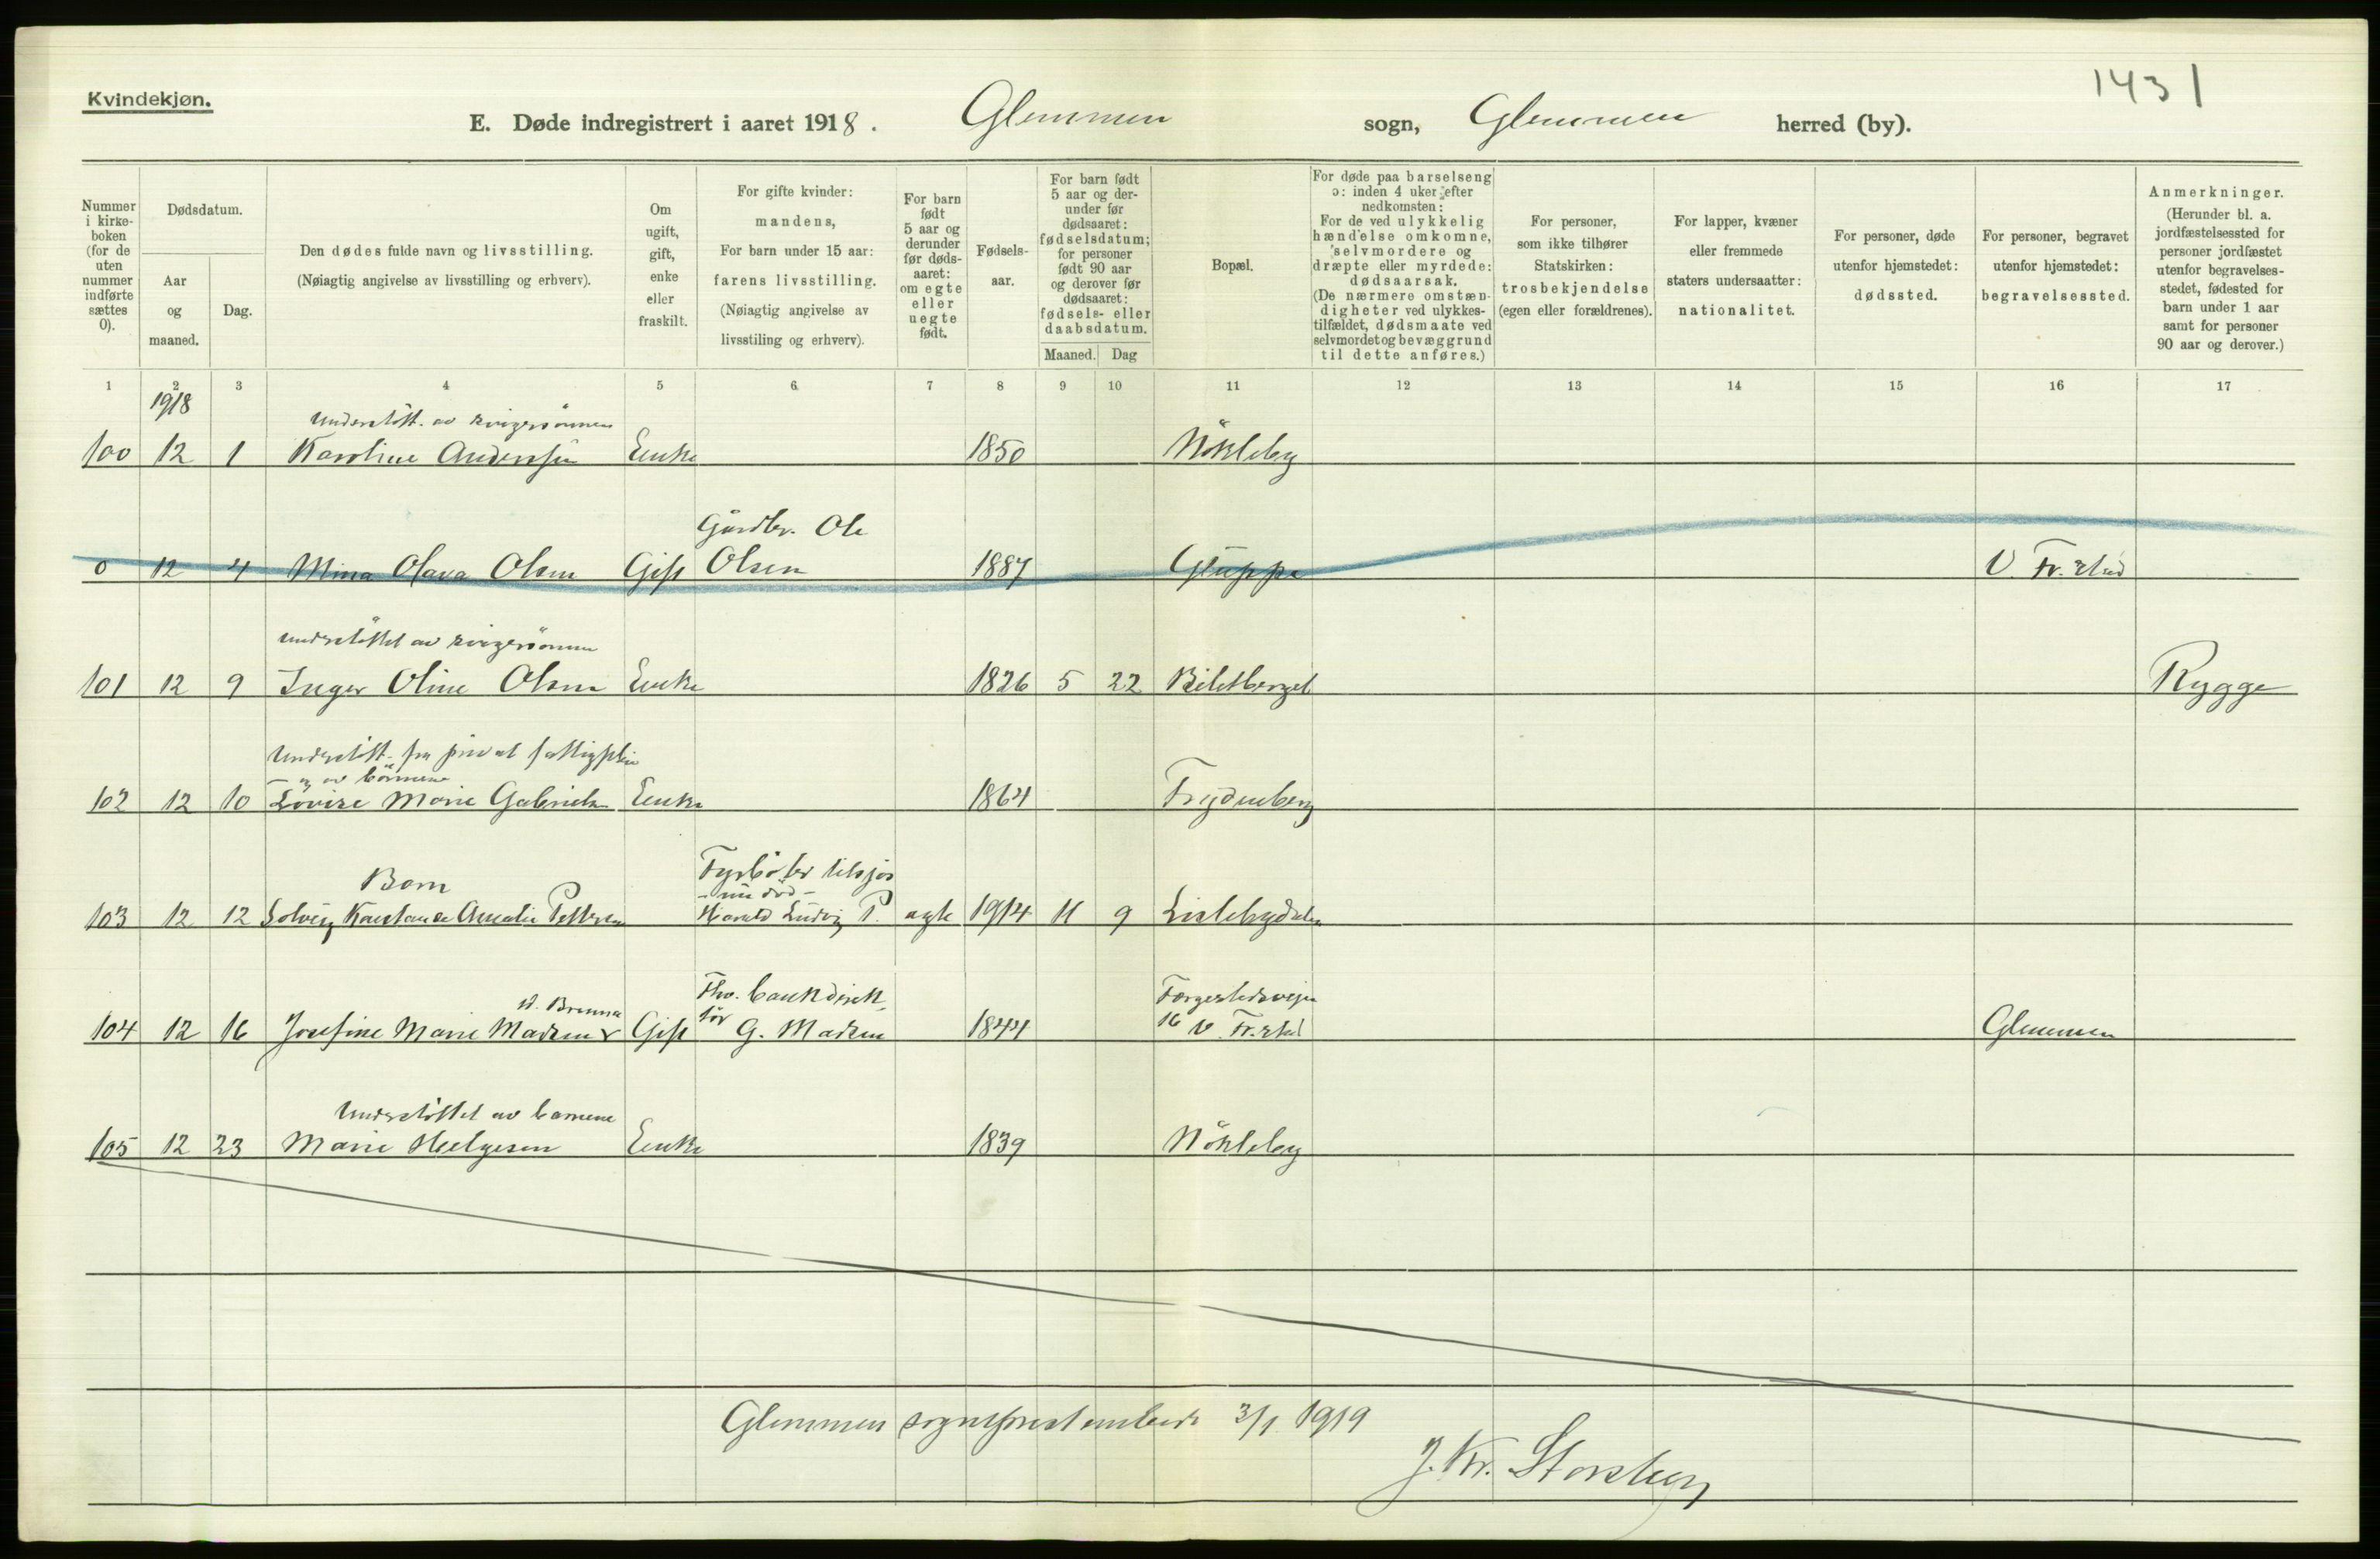 1431
Kvindekjøn.
E. Døde indregistrert i aaret 1918. Glemmen sogn, Glemmen herred (by).
Nummer i kirke-boken (for de uten nummer indførte sættes 0).
Dødsdatum.
Aar og maaned.
Dag.
Den dødes fulde navn og livsstilling.
(Nøiagtig angivelse av livsstilling og erhverv).
Om ugift, gift, enke eller fraskilt.
For gifte kvinder: mandens,
For barn under 15 aar: farens livsstilling.
(Nøiagtig angivelse av livsstiling og erhverv).
For barn født 5 aar og derunder før døds-aaret: om egte eller uegte født.
Fødsels-aar.
For barn født 5 aar og der-under før dødsaaret: fødselsdatum; for personer født 90 aar og derover før dødsaaret: fødsels- eller daabsdatum.
Maaned. Dag
Bopæl.
For døde paa barselseng ɔ: inden 4 uker efter nedkomsten:
For de ved ulykkelig hændelse omkomne, selvmordere og dræpte eller myrdede: dødsaarsak.
(De nærmere omstæn-digheter ved ulykkes-tilfældet, dødsmaate ved selvmordet og bevæggrund til dette anføres.)
For personer, som ikke tilhører Statskirken: trosbekjendelse (egen eller forældrenes).
For lapper, kvæner eller fremmede staters undersaatter: nationalitet.
For personer, døde utenfor hjemstedet: dødssted.
For personer, begravet utenfor hjemstedet: begravelsessted.
Anmerkninger.
(Herunder bl. a. jordfæstelsessted for personer jordfæstet utenfor begravelses-stedet, fødested for barn under 1 aar samt for personer 90 aar og derover.)
1 2 3 4 5 6 7 8 9 10 11 12 13 14 15 16 17
1918
Understøtt. av svigersønnen
100 12 1 Karoline Andersen Enke 1850 Nökleby
Gårdbr. Ole
0 12 4 Mina Olava Olsen Gift Olsen 1887 Gluppe V. Fr.stad
understøttet av svigersønnen
101 12 9 Inger Oline Olsen Enke 1826 5 22 Biletberget Rygge
Understøtt. fra privat fattigpleie
- og av børnene
102 12 10 Lovise Marie Gabrielsen Enke 1864 Frydenberg
Barn Fyrbøter tilsjøs
- nu død -
103 12 12 Solveig Konstance Amalie Pettersen Harald Ludvig P. egte 1914 11 9 Lislebydalen
f. Brunna Fhv. bankdirek- Færgestedsveien
104 12 16 Josefine Marie Madsen Gift tör G. Madsen 1844 16 V. Fr.stad Glemmen
Understøttet av barnene
105 12 23 Marie Helgesen Enke 1839 Nökleby
Glemmen sogneprestembede 3/1 1919
J. Kr. Storsberg